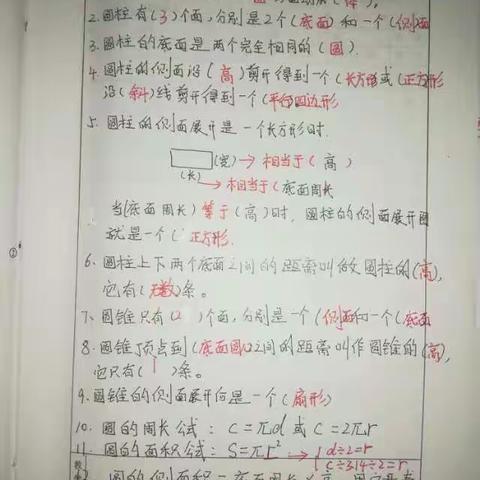 2. 圆柱有(3)个面,分别是2个(底面)和一个(侧)面
3. 圆柱的底面是两个完全相同的(圆).
4. 圆柱的侧面沿(高)剪开得到一个(长方形或(正方形
沿(斜)线剪开得到一个(平行四边形
5. 圆柱的侧面展开是一个长方形时.
(宽)→相当于(高)
(长)
→相当于(底面周长
当(底面周长)等于(高)时,圆柱的侧面展开图
就是一个(正方形.
6. 圆柱上下两个底面之间的距离叫做圆柱的(高),
它有(无数)条。
7. 圆锥只有(2)个面,分别是一个(侧面和一个(底面
8. 圆锥顶点到(底面圆心之间的距离叫作圆锥的(高),
它只有(1)条。
9. 圆锥的侧面展开后是一个(扇形)
10. 圆的周长公式: C=πd 或 C=2πr
11. 圆的面积公式: S=πr² → d÷2=r
C÷3.14÷2=r